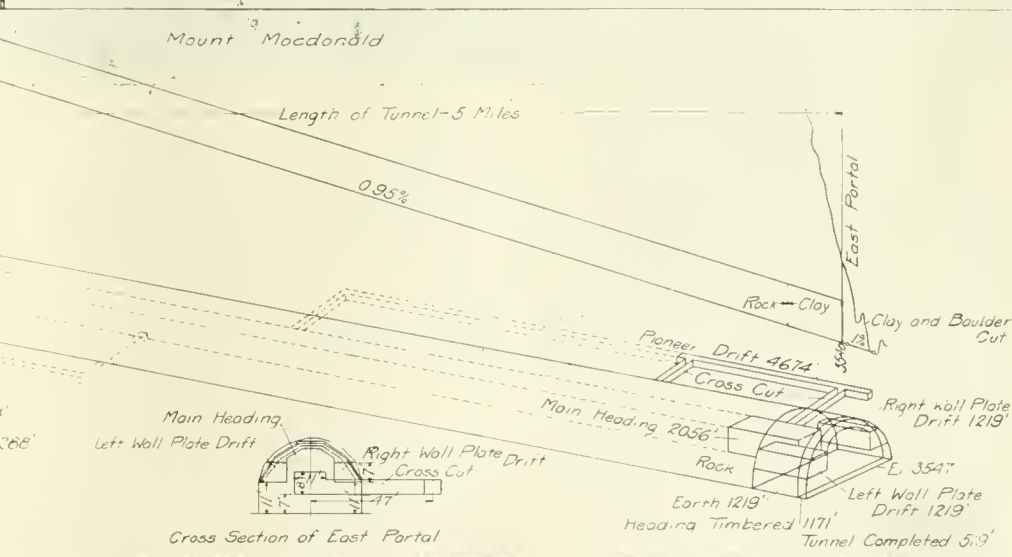 Mount Macdonald
Length of Tunnel-5 Miles
0.95%
East Portal
Rock
Clay
Clay and Boulder
Cut
1%
Pioneer Drift 4674'
Cross Cut
Main Heading 2056'
Right Wall Plate
Drift 1219'
Rock
El 3547
Earth 1219'
Left Wall Plate
Drift 1219'
Heading Timbered 1171'
Tunnel Completed
Main Heading
Left Wall Plate Drift
Right Wall Plate Drift
Cross Cut
11'
7'
8'
11'
47'
Cross Section of East Portal